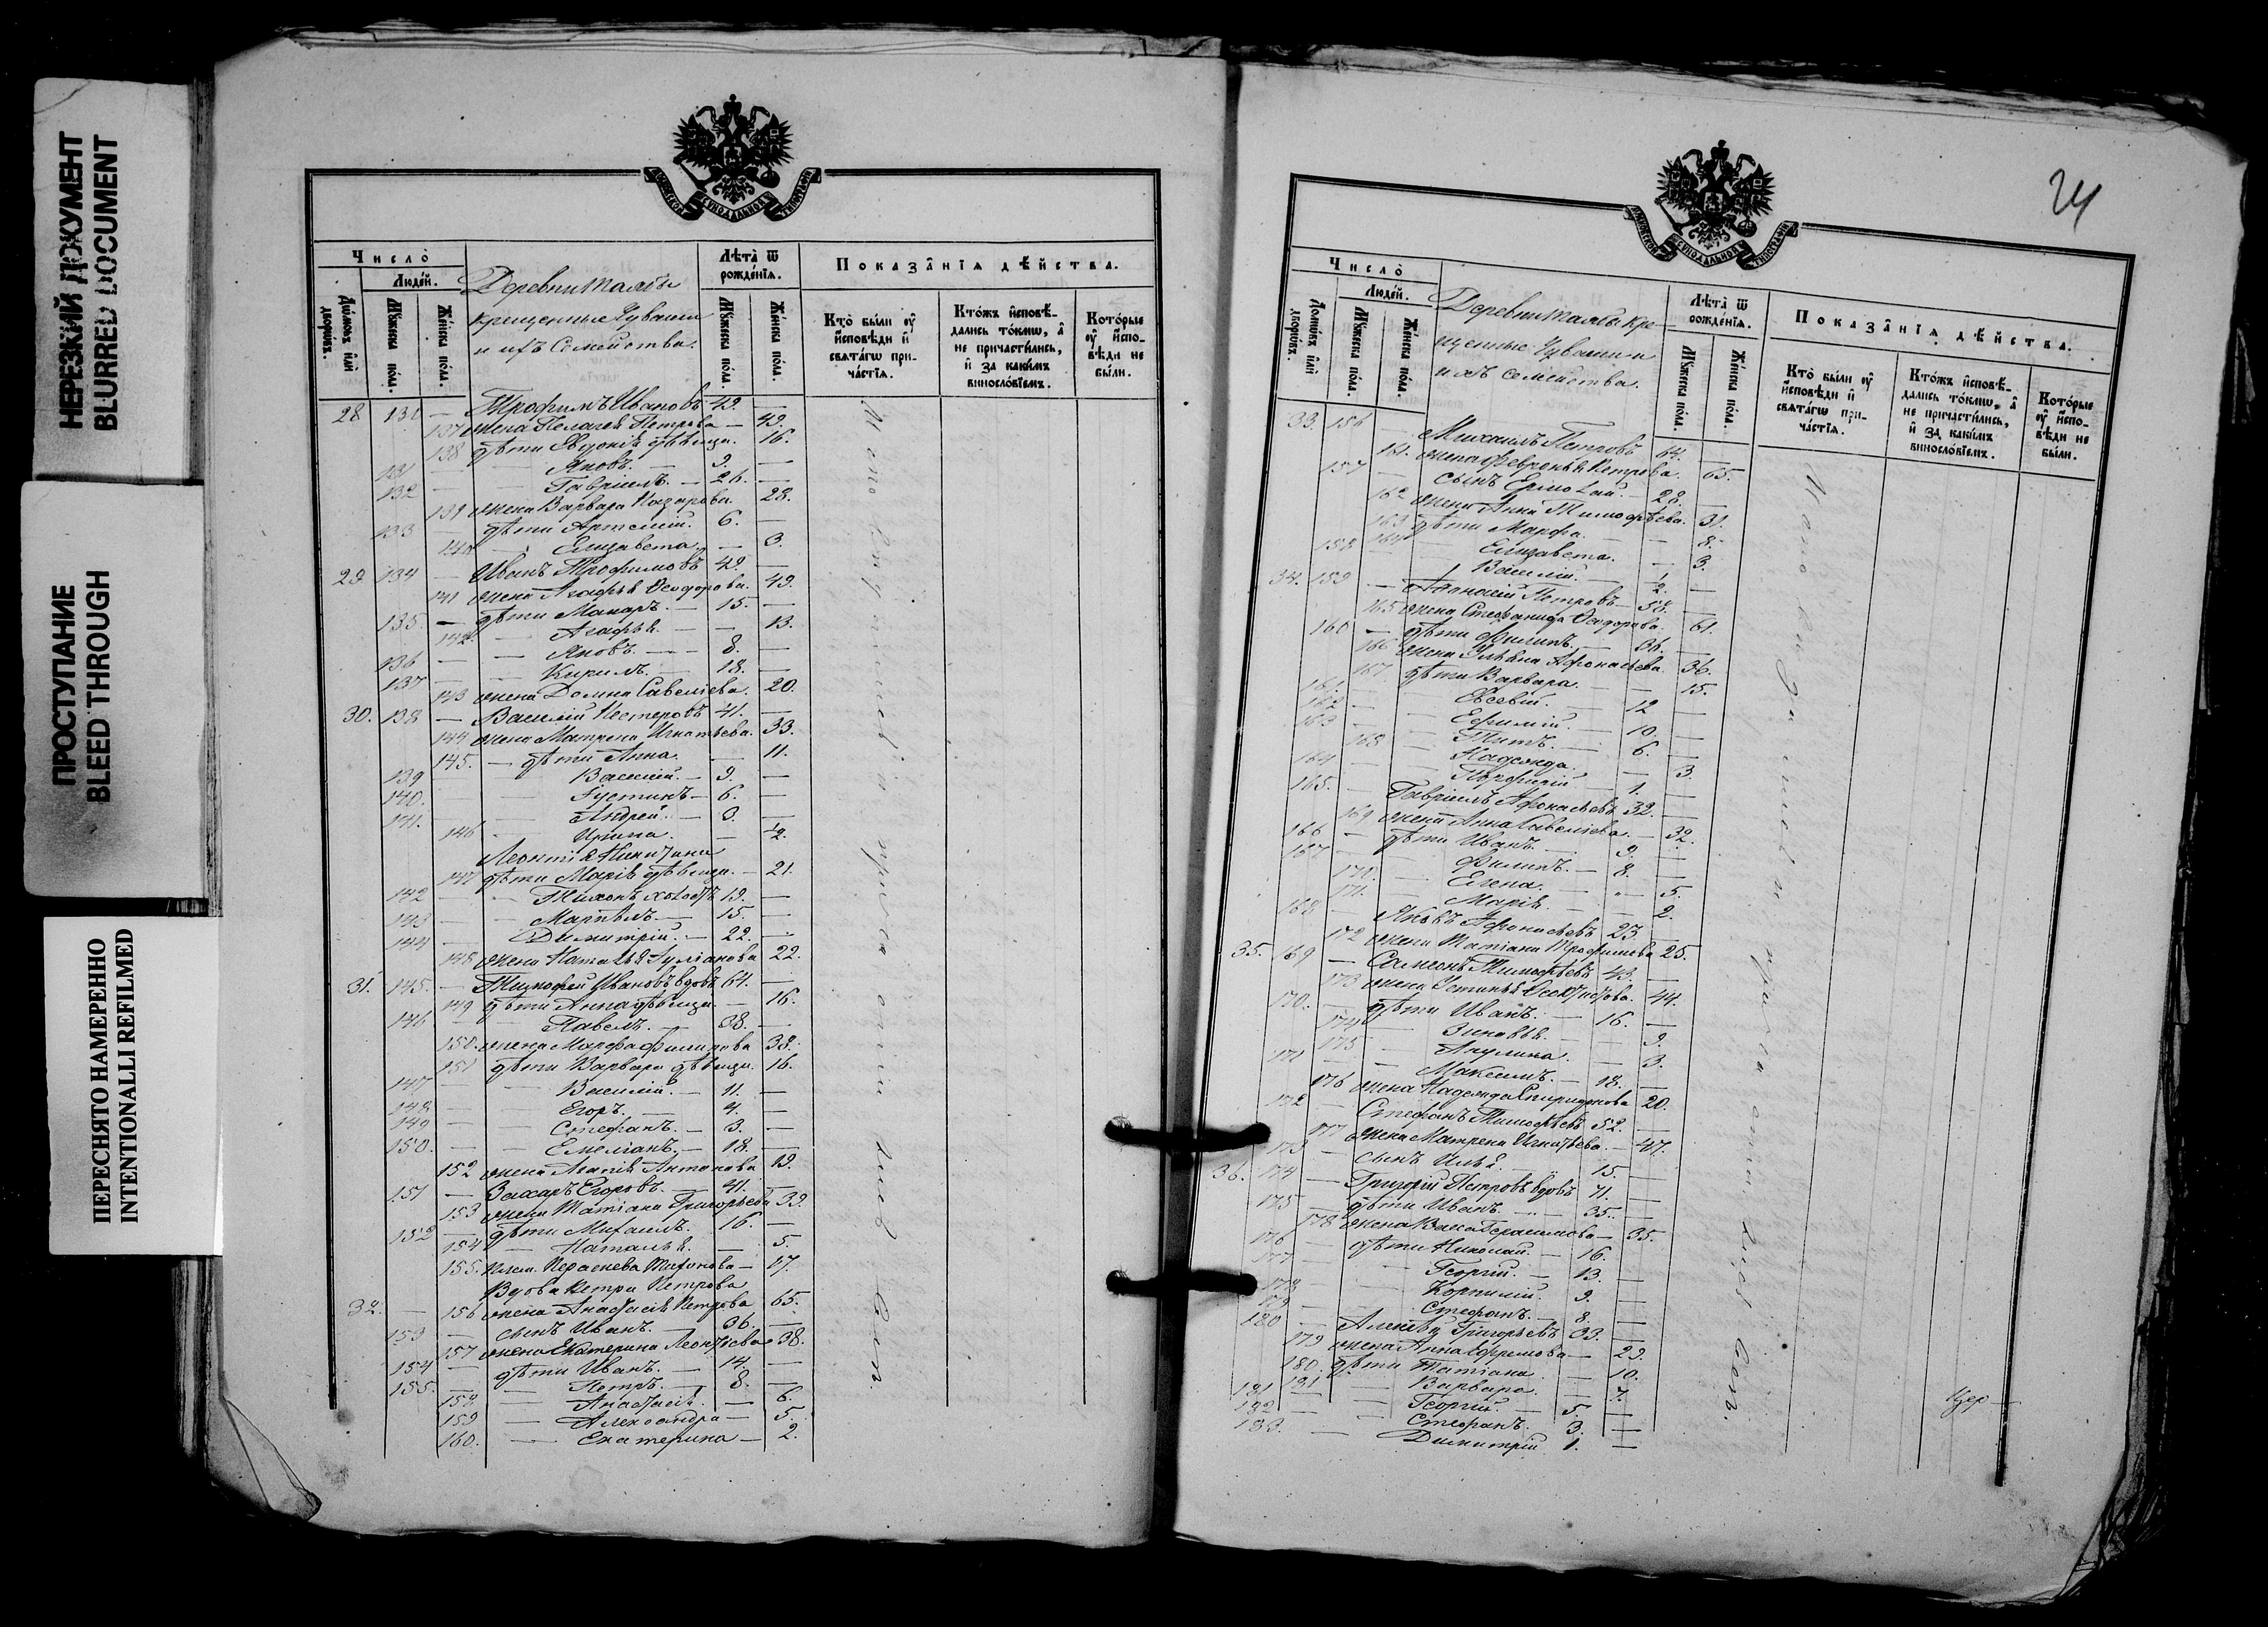 НЕРЕЗКИЙ ДОКУМЕНТ
BLURRED DOCUMENT
ПРОСТУПАНИЕ
BLEED THROUGH
ПЕРЕСНЯТО НАМЕРЕННО
INTENTIONALLI REFILMED
МОСКОВСКОЙ СУНОДАЛЬНОЙ ТИПОГРАФІИ
Число̀
Людей.
Домѡвъ или дворѡвъ.
Мꙋжеска пола.
Женска пола.
Деревни
крещенные Чуваши
и ихъ Семейства.
Лѣта̀ ѿ рожденїѧ.
Мꙋжеска пола.
Женска пола.
Показанїѧ дѣйства.
Кто̀ были оу҆ исповѣди и свѧтагѡ причастїѧ.
Ктожъ исповѣдались токмѡ, а҆ не причастились, и за какимъ винословїемъ.
Которые оу҆ исповѣди не были.
28 130 — Трофимъ Ивановъ 49. —
137 жена Пелагея Петрова — 49.
138 дѣти Евдокія дѣвица. 16.
131 — Яковъ. — 9. —
132 — Гавріилъ. — 26. —
139 жена Варвара Назарова. 28.
133 — дѣти Артемій. 6. —
140 — Елизавета. — 3.
29 134 — Иванъ Трофимовъ 49. —
141 жена Агафья Ѳеодорова. 49.
135. — дѣти Макаръ. — 15. —
142 — Агафья. — 13.
136 — — Яковъ. — 8. —
137 — Кирилъ. 18. —
143 жена Домна Савеліева. 20.
30. 138 — Василій Нестеровъ 41. —
144 жена Матрена Игнатьева. 33.
145. — дѣти Анна. — 11.
139 Василій. — 9. —
140. — Іустинъ — 6. —
141. — Андрей. — 3. —
146 — Ирина. — ½.
Леонтія Никитина
147 дѣти Марія дѣвица. — 21.
142 — — Тихонъ холостъ 19. —
143 — — Мартынъ — 15. —
144 — Димитрій. — 22. —
148 жена Наталья Іуліанова 22.
31. 145. — Тимофей Ивановъ вдовъ 64. —
149 дѣти Анна дѣвица. — 16.
146 — — Павелъ. — 38. —
150. жена Марфа Филипова 38.
151 дѣти Варвара дѣвица. 16.
147 — Василій. — 11. —
148 — — Егоръ. — 4. —
149 — — Стефанъ. — 3. —
150. — — Емеліанъ. — 18. —
152 жена Агапія Антонова 19.
151 — Захаръ Егоровъ. — 41. —
153 жена Татіана Григорьева 39.
152 — дѣти Михаилъ. 16. —
154 — Наталья. — 5.
155. Тихонова — 17.
Вдова Петра Петрова
32. — 156 жена Анастасія Петрова 65.
153 — сынъ Иванъ. — 36. —
157 жена Екатерина Леонтіева 38.
154 — дѣти Иванъ. — 14. —
155. — — Петръ. — 8. —
158 — Анастасія. — 6.
159 — Александра — 5.
160. — Екатерина — 2.
24
МОСКОВСКОЙ СУНОДАЛЬНОЙ ТИПОГРАФІИ
Число̀
Людей.
Домѡвъ или дворѡвъ.
Мꙋжеска пола.
Женска пола.
Деревни Кре-
щенные Чуваши и
ихъ семейства.
Лѣта̀ ѿ рожденїѧ.
Мꙋжеска пола.
Женска пола.
Показанїѧ дѣйства.
Кто̀ были оу҆ исповѣди и свѧтагѡ причастїѧ.
Ктожъ исповѣдались токмѡ, а҆ не причастились, и за какимъ винословїемъ.
Которые оу҆ исповѣди не были.
33. 156 — Михаилъ Петровъ 64. —
161. жена Февронья Петрова. 65.
157 — сынъ Ермолай. — 28. —
162 жена Анна Тимофѣева. 31.
163 дѣти Марфа. — 8.
164 — Елизавета. — 3.
158 — Василій. — ½. —
34. 159 — Афанасій Петровъ — 58. —
165 жена Стефанида Ѳеодорова. 61.
160 — дѣти Филипъ. — 36. —
166 жена Ульяна Афонасьева. 36.
167 дѣти Варвара. — 15.
161. — Евсевій. — 12 —
162 — Ефимій. — 10. —
163 — Титъ. — 6. —
168 — Надежда. — 3.
164 — Порфирій — 1. —
165. — Гавріилъ Афонасьевъ 32. —
169 жена Анна Савеліева. — 32.
166 — дѣти Иванъ. — 9. —
167 — — Филипъ. — 8. —
170. — Елена. — 5.
171. — Марія. — 2.
168 — Яковъ Афонасьевъ 23 —
172 жена Татіана Трофимова 25.
35. 169 — Самсонъ Тимофѣевъ 43. —
173 жена Устинья 44.
170. — дѣти Иванъ. — 16. —
174 — Зиновья. — 9.
175 — Акулина. — 3.
171 — Максимъ. — 18. —
176 жена Надежда Спиридонова 20.
172 — Стефанъ Тимофѣевъ 52. —
177 жена Матрена Игнатьева. — 47.
173 — сынъ Илья. — 15. —
36. 174 — Григорій Петровъ вдовъ 71. —
175 — дѣти Иванъ. — 35. —
178 жена Васса Герасимова — 35.
176 — дѣти Николай. — 16. —
177 — — Георгій. — 13. —
178 — — Корнилій. — 9. —
179 — — Стефанъ. — 8. —
180 — Алексѣй Григорьевъ 33. —
179 жена Анна Ефремова — 29.
180. дѣти Татіана — 10.
181 — Варвара. — 7.
181 — — Георгій. — 5. —
182 — — Стефанъ. 3. —
183. — Димитрій 1. —